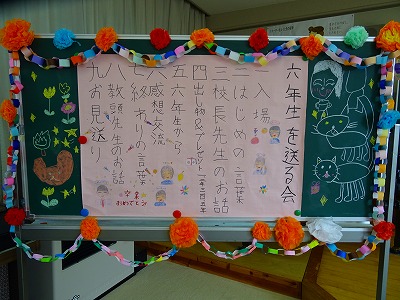 六年生を送る会
一入場
二はじめの言葉
三校長先生のお話
四出し物&プレゼント
五六年生から
六感想交流
七終わりの言葉
八教頭先生のお話
九お見送り
卒業
おめでとう